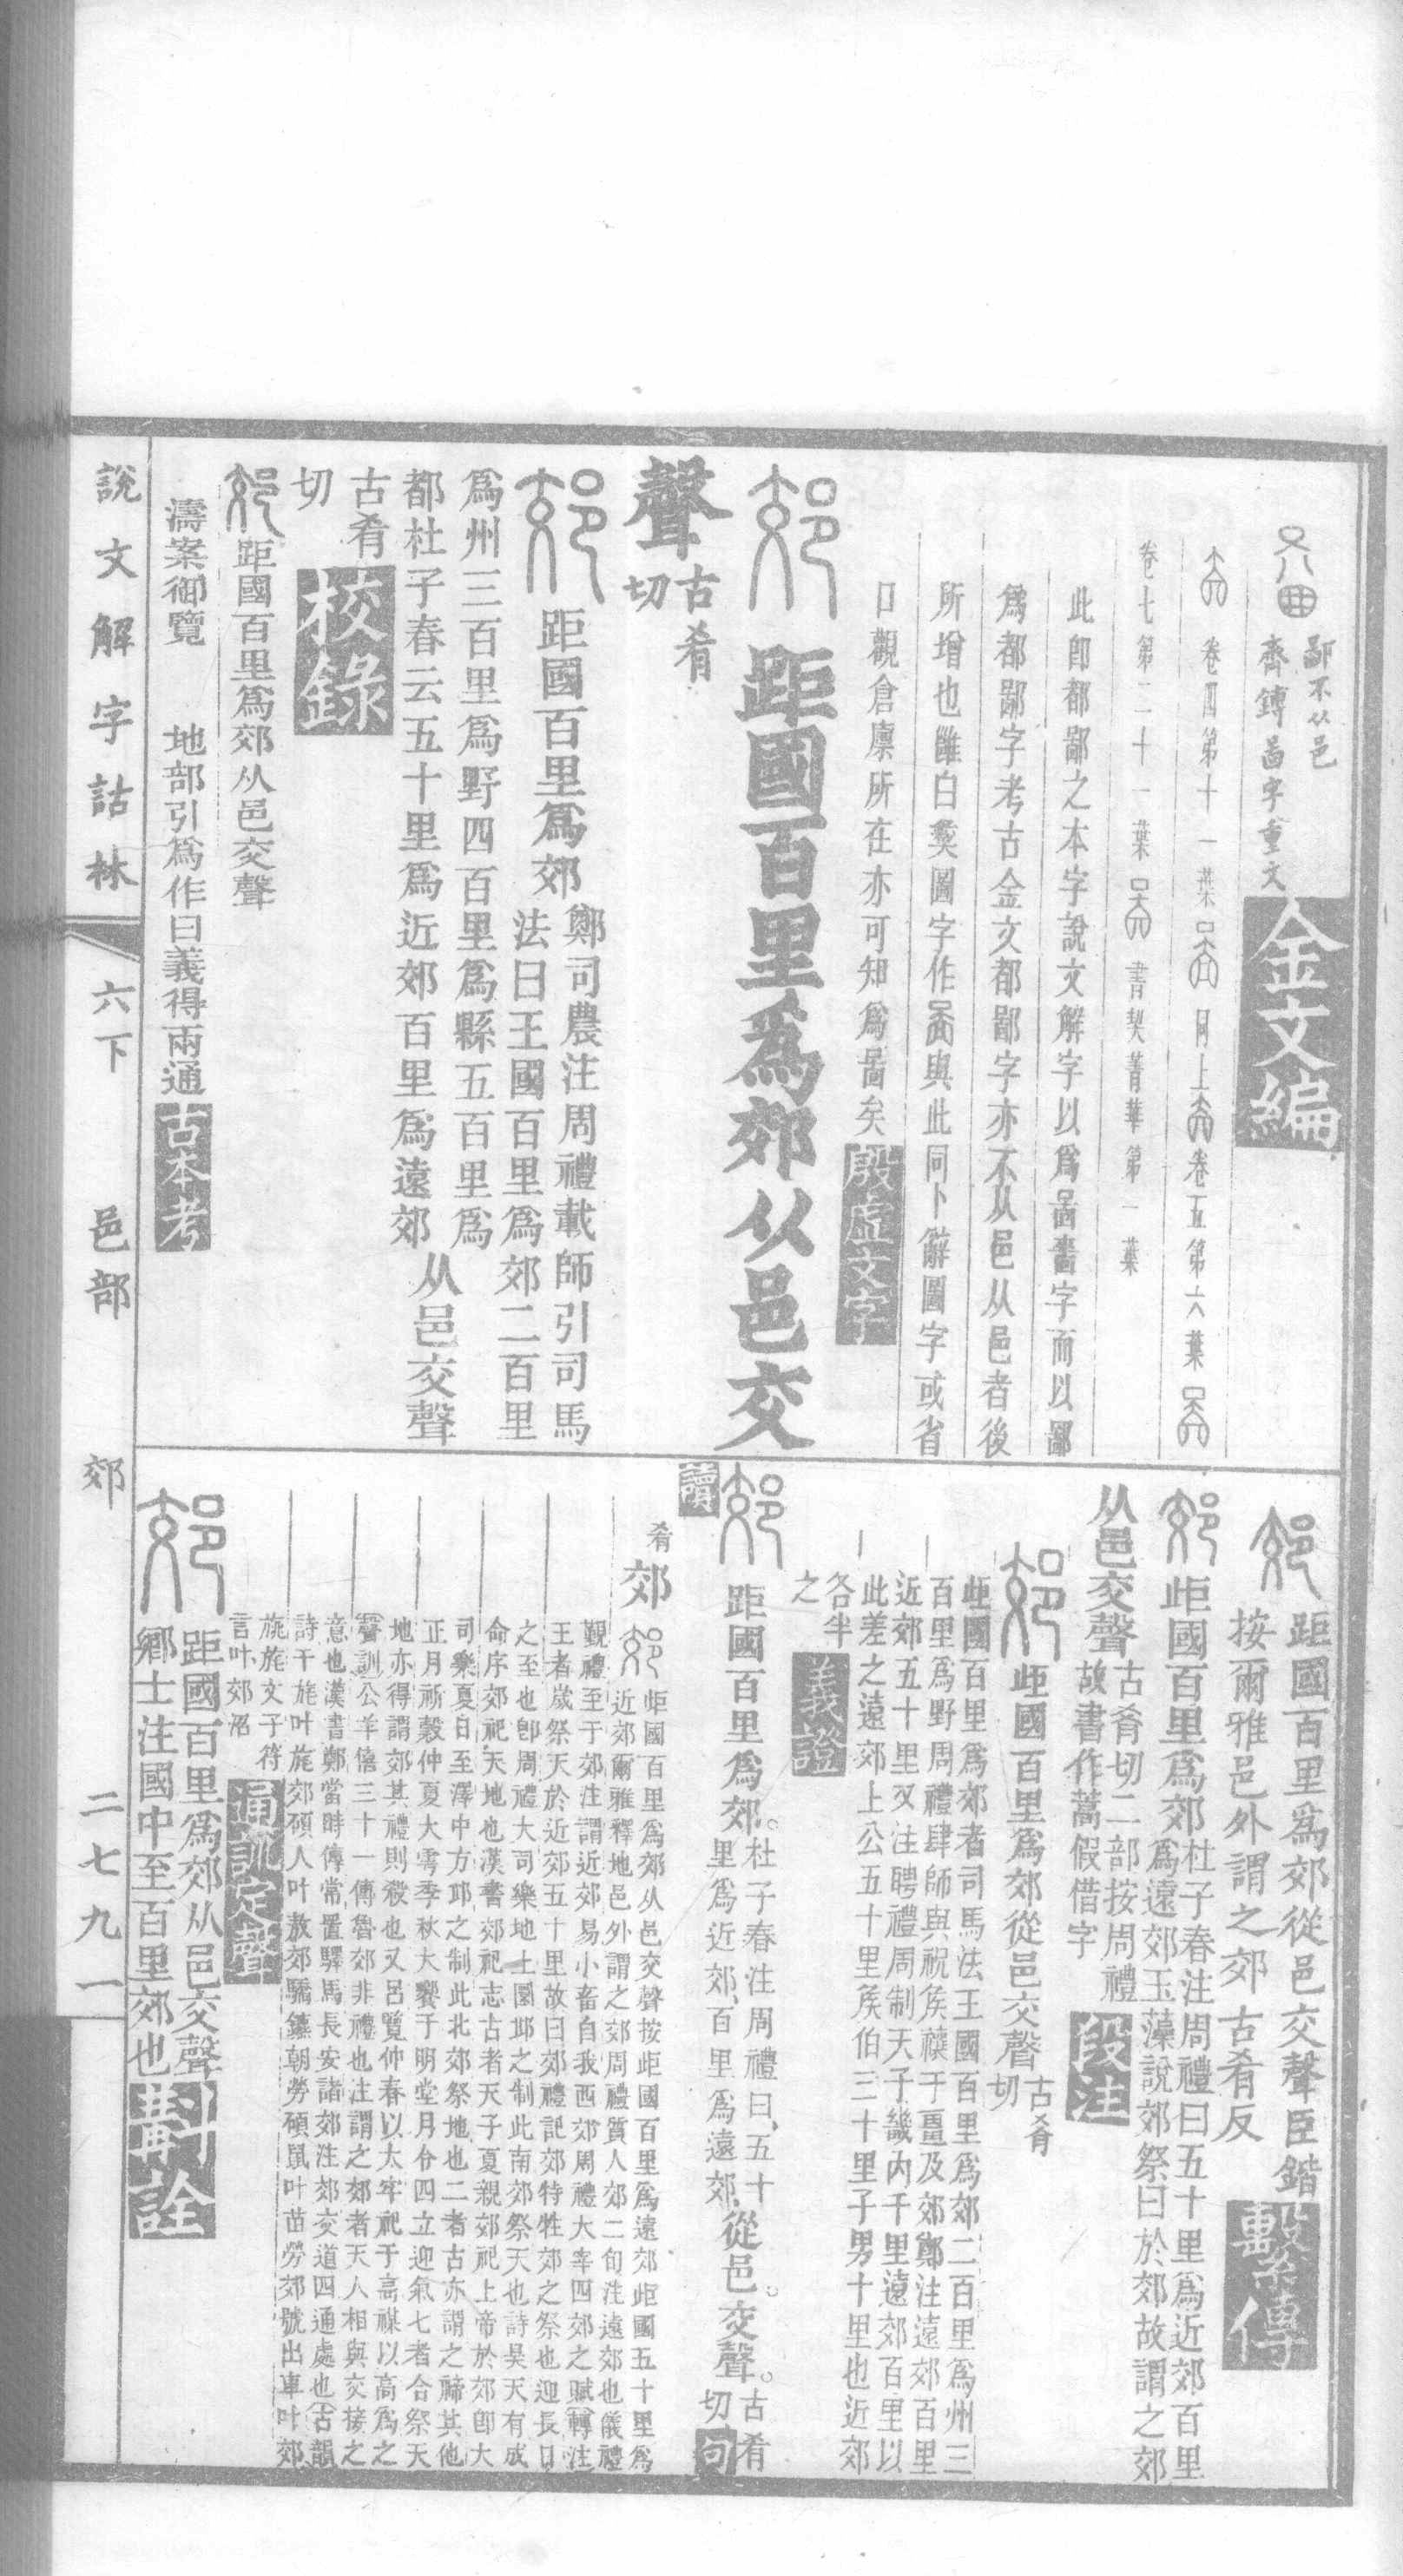 鄙不从邑
齊鎛啚字重文
金文編
卷四第十一葉
同上
卷五第六葉
卷七第二十一葉
書契菁華第一葉
此卽都鄙之本字說文解字以爲啚嗇字而以鄙
爲都鄙字考古金文都鄙字亦不从邑从邑者後
所增也雝白彝圖字作與此同卜辭圖字或省
口觀倉廩所在亦可知爲啚矣
殷虛文字
距國百里爲郊从邑交
聲
古肴
切
距國百里爲郊
鄭司農注周禮載師引司馬
法曰王國百里爲郊二百里
爲州三百里爲野四百里爲縣五百里爲
都杜子春云五十里爲近郊百里爲遠郊
从邑交聲
古肴
切
校錄
距國百里爲郊从邑交聲
濤案御覽 地部引爲作曰義得兩通
古本考
距國百里爲郊從邑交聲臣鍇
按爾雅邑外謂之郊古肴反
繫傳
歫國百里爲郊
杜子春注周禮曰五十里爲近郊百里
爲遠郊玉藻說郊祭曰於郊故謂之郊
从邑交聲
古肴切二部按周禮
故書作蒿假借字
段注
歫國百里爲郊從邑交聲
古肴
切
歫國百里爲郊者司馬法王國百里爲郊二百里爲州三
百里爲野周禮肆師與祝侯禳于畺及郊鄭注遠郊百里
近郊五十里又注聘禮周制天子畿內千里遠郊百里以
此差之遠郊上公五十里侯伯三十里子男十里也近郊
各半
之
義證
距國百里爲郊。
杜子春注周禮曰、五十
里爲近郊、百里爲遠郊、
從邑。交聲。
古肴
切
句
讀
肴
郊
歫國百里爲郊从邑交聲按歫國百里爲遠郊歫國五十里爲
近郊爾雅釋地邑外謂之郊周禮質人郊二旬注遠郊也儀禮
覲禮至于郊注謂近郊易小畜自我西郊周禮大宰四郊之賦轉注
王者歲祭天於近郊五十里故曰郊禮記郊特牲郊之祭也迎長日
之至也卽周禮大司樂地上圜邱之制此南郊祭天也詩昊天有成
命序郊祀天地也漢書郊祀志古者天子夏親郊祀上帝於郊卽大
司樂夏日至澤中方邱之制此北郊祭地也二者古亦謂之禘其他
正月祈穀仲夏大雩季秋大饗于明堂月令四立迎氣七者合祭天
地亦得謂郊其禮則殺也又呂覽仲春以太牢祀于高禖以高爲之
聲訓公羊僖三十一傳魯郊非禮也注謂之郊者天人相與交接之
意也漢書鄭當時傳常置驛馬長安諸郊注郊交道四通處也古韻
詩干旄叶旄郊碩人叶敖郊驕鑣朝勞碩鼠叶苗勞郊號出車叶郊
旐旄文子符
言叶郊
通訓定聲
距國百里爲郊从邑交聲
鄉士注國中至百里郊也
斠詮
說文解字詁林
六下
邑部
郊
二七九一